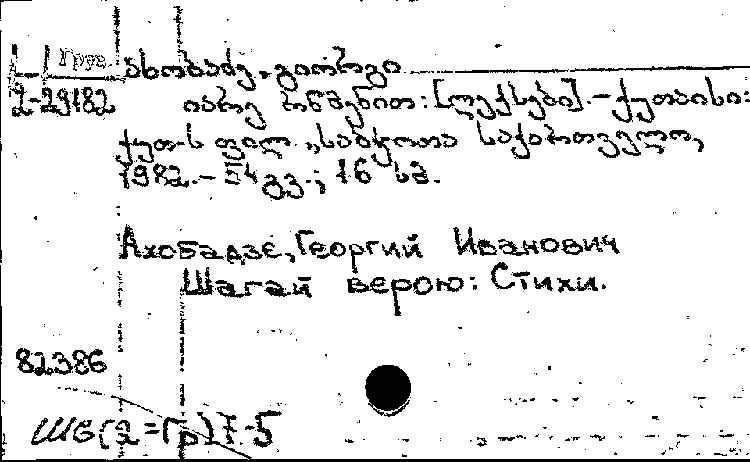 Груз.
ახობაძე, გიორგი
2-29182 იარე რწმენით: [ლექსები]. – ქუთაისი:
ქუთ-ს ფილ. „საბჭოთა საქართველო,
1982. – 54 გვ.; 16 სმ.
Ахобадзе, Георгий Иванович
Шагай верою: Стихи.
82386
Ш6(2=Гр)7-5